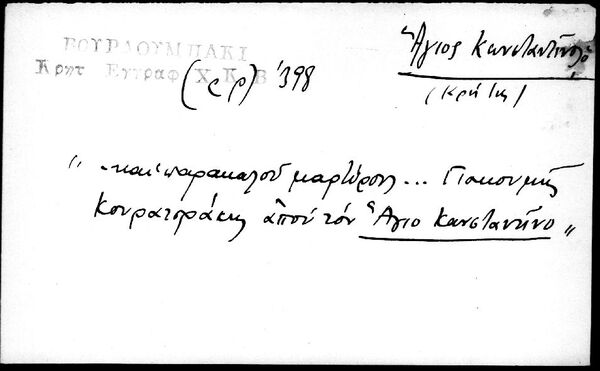 ΒΟΥΡΔΟΥΜΠΑΚΙ
Κρητ Εγγραφ Χ Κ Β
398
Ἅγιος Κωνσταντῖνος
(Κρήτης)
" ..καὶ παρακαλοῦ μαρτύρους ... Γιακουμῆς
Κουρατοράκης ἀποὺ τὸν Ἅγιο Κωνσταντῖνο "